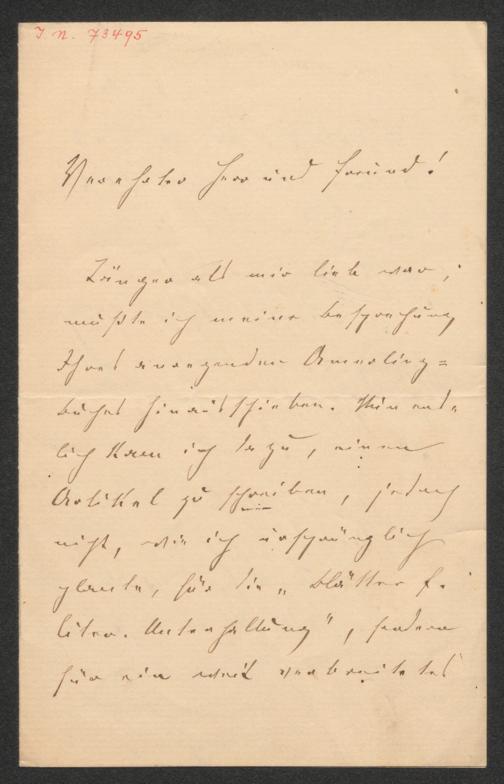 I. N. 73495
Verehrter Herr und Freund!
Länger als mir lieb war,
mußte ich meine Besprechung
Ihres anregenden Amerling=
buches hinausschieben. Nun end-
lich kam ich dazu, einen
Artikel zu schreiben, jedoch
nicht, wie ich ursprünglich
glaubte, für die „Blätter f.
liter. Unterhaltung", sondern
für ein weit verbreitetes